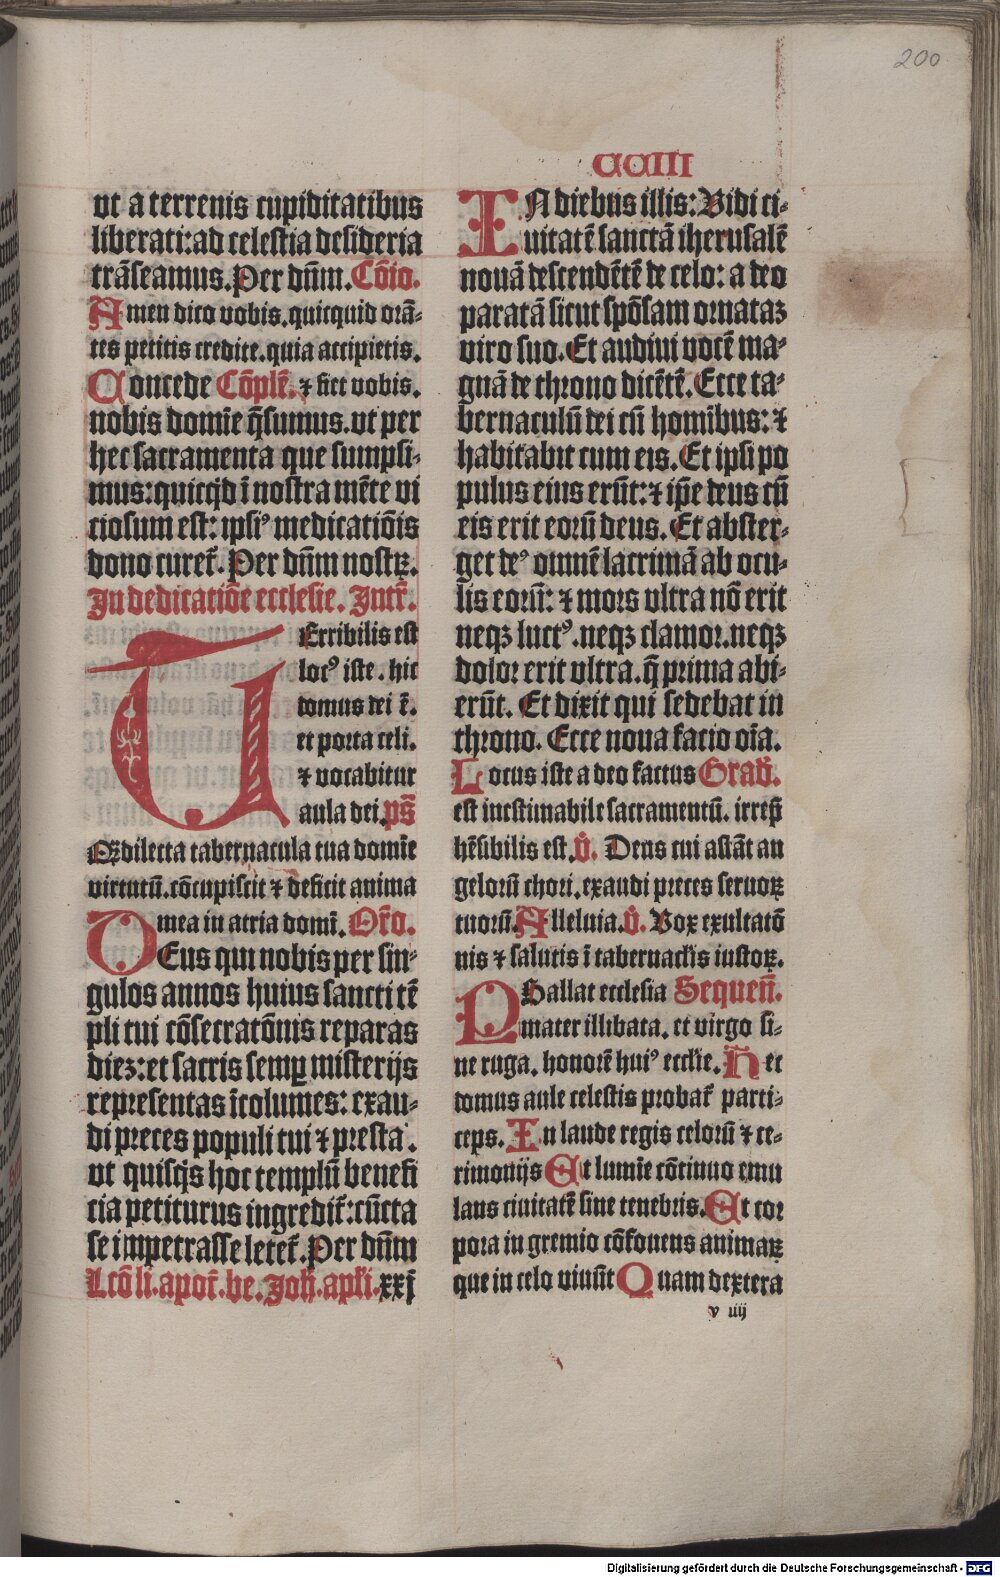 200
CCIII
ut a terrenis cupiditatibus
liberati: ad celestia desideria
trāseamus. Per dn̄m. Cōio.
Amen dico vobis. quicquid orā-
tes petitis credite. quia accipietis.
Concede Cōplē. ⁊ fiet vobis.
nobis domīe q̄sumus. ut per
hec sacramenta que sumpsi-
mus: quicq̇d ī nostra mēte vi
ciosum est: ipsiꝰ medicatiōis
dono curet᷑. Per dn̄m nostꝝ.
In dedicatiōe ecclesie. Intr̄.
TErribilis est
locꝰ iste. hic
domus dei ē.
et porta celi.
⁊ vocabitur
aula dei. ps̄
Q̄ꝫ dilecta tabernacula tua domīe
virtutū. cōcupiscit ⁊ deficit anima
mea in atria domī. Or̄o.
DEus qui nobis per sin-
gulos annos huius sancti tē
pli tui cōsecratōnis reparas
dieꝫ: et sacris semꝑ misterijs
representas īcolumes: exau-
di preces populi tui ⁊ presta.
ut quisq̇s hoc templū benefi
cia petiturus ingredit᷑: cūcta
se impetrasse letet᷑. Per dn̄m
Lcō li. apoc̄. be. Joh̄. apl̄i. xxj
IN diebus illis: Vidi ci-
uitatē sanctā iherusalē
nouā descendētē de celo: a deo
paratā sicut spōsam ornataꝫ
viro suo. Et audiui vocē ma-
gnā de throno dicētē. Ecce ta-
bernaculū dei cū homībus: ⁊
habitabit cum eis. Et ipsi po
pulus eius erūt: ⁊ ip̄e deus cū
eis erit eorū deus. Et abster-
get deꝰ omnē lacrimā ab ocu-
lis eorū: ⁊ mors ultra nō erit
neqꝫ luctꝰ. neqꝫ clamor. neqꝫ
dolor erit ultra. q̄ prima abi-
erūt. Et dixit qui sedebat in
throno. Ecce noua facio oīa.
Locus iste a deo factus Grad̄.
est inestimabile sacramentū. irrep̄
hēsibilis est. v̊. Deus cui astāt an
gelorū chori. exaudi preces seruoꝝ
tuorū. Alleluia. v̊. Vox exultatō
nis ⁊ salutis ī tabernaclīs iustoꝝ.
PSallat ecclesia Sequen̄.
mater illibata. et virgo si-
ne ruga. honorē huiꝰ eccl̄ie. Hec
domus aule celestis probat᷑ parti-
ceps. In laude regis celorū ⁊ ce-
rimonijs Et lumīe cōtinuo emu
lans ciuitatē sine tenebris. Et cor
pora in gremio cōfouens animaꝝ
que in celo viuūt Quam dextera
v iiij
Digitalisierung gefördert durch die Deutsche Forschungsgemeinschaft - DFG